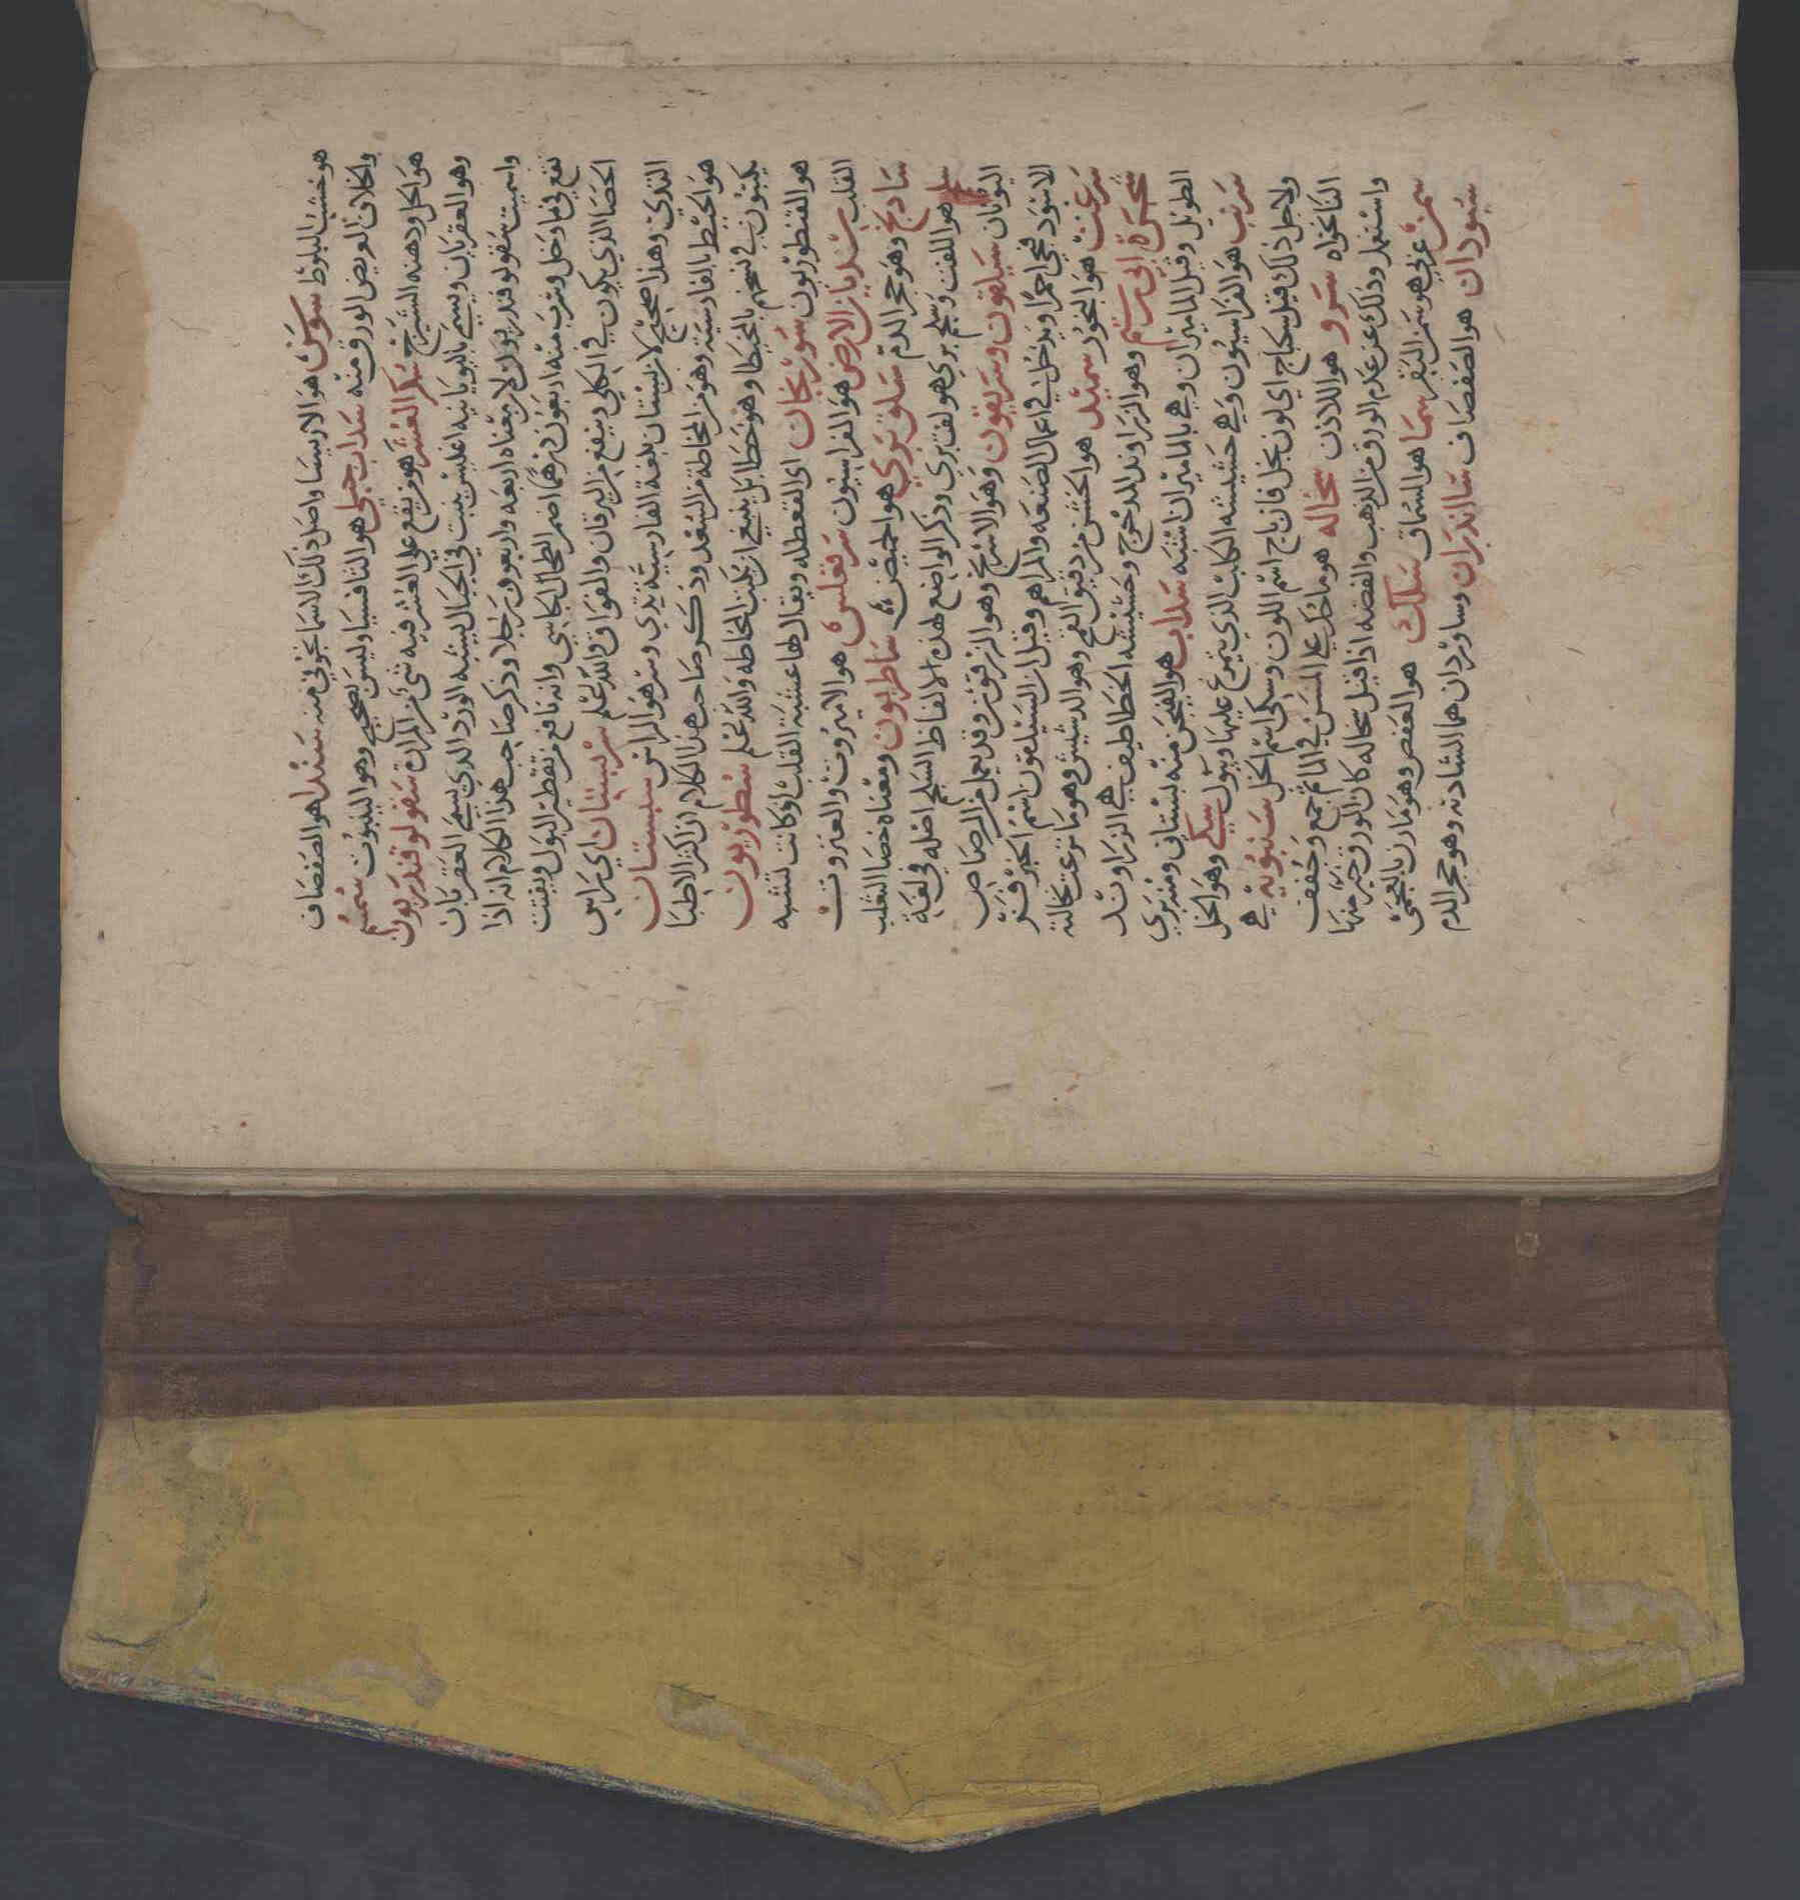 هو خشب البلوط سوسن هو الارسيا واصل ذلك الاسمانجوني منه سندا هو الصفصاف
والخلاف العريض الورق منه سداب جبلي هو التافسيا وليس بصحيح وهو الينبوت سمسم
هو الحل ودهنه الشيرج سكر العشر هو من يقع على العشر فيه شيء من المرارة سقولوقندريون
وهو العقربان ويسمى باليونانيه اغليس ينبت في الجبال يشبه الورد الذي يسمى العقربان
واسميت سقولوقندريون لان معناه اربعه واربعون رجلا وذكر صاحب هذا الكلام انه اذا
نقع في ما وخل وشرب منه اربعون درهما اضمر الطحال الجاسي وانه نافع من تقطير البول ويفتت
الحصا الذي يكون في الكلى وينفع من اليرقان والفواق والله اعلم سربستان اي راس
الثدي وهذا صحيح لان بستان بلغة الفارسية ثدي وسر هو الراس سبستان
هو المخيط بالفارسية وهو من المخاطة من السعد وذكر صاحب هذا الكلام ان اكثر الاطبا
يكتبون في نسخهم بالمخيطا وهو خطا بل ينبغي ان يكتب المخاطة والله اعلم سطوريون
هو القنطوريون سورنجان اي القعطله ويقال لها عشبة القلب اذ كانت تشبه
القلب شديان الارض هو الفراسيون سرقعلس هو الانيروت والعنزروت
سادنج وهو حجر الدم سلق بري هو الحميض ساطريون ومعناه خصا الثعلب
سلجم هو اللفت وسلجم بري هو لفت بري وذكر الواضع لهذه الالفاظ السلجم اصله في لغة
اليونان سيلقون وسريقون وهو الاسرنج وهو الزرقون وقد يعمل من الرصاص
الاسود فيجي احمرا ويدخل في اعمال الصنعه والمراهم وقيل ان السيلقون اسم الخبزفنو
سرعنت هو البخور سميد هو الخشن من دقيق القمح وهو الدشيش وهو ما نزعت نخالته
شجرة ابي رستم وهو الزراوند المدحرج وحشيشه الخطاطيف هي الزراوند
الطويل وقيل الماميران وهي بالماميران اشبه سداب هو الفيجن منه بستاني ومنه بري
سرنب هو الفراسيون وهي حشيشه الكلب الذي يتمرغ عليها ويبول سكي وهو الخل
ولاجل ذلك قيل سكباج اي لون بخل فان باج اسم اللون وسكي اسم الخل سنبويه هي
النانخواه سرو هو اللاذن سحاله هو ما حك على المسن في الماثم جمع وجفف
واستعمل وذلك عن عدم الورق من الذهب والفضه اذا قيل سحاله كان الورق خير منها
سمن عربي هو سمن البقر سما هو السماق سلك هو العفص وهو مازن بالعجمي
سبودان هو الصفصاف سااندران وساوردان هما الشادنه وهو حجر الدم